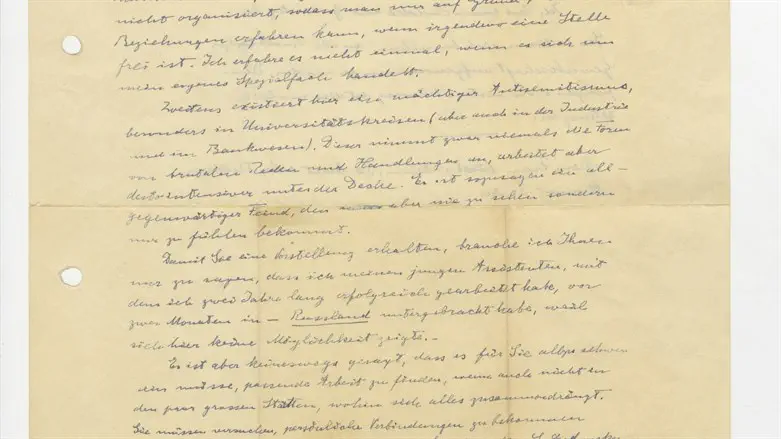 nicht organisiert, sodass man nur auf Grund
Beziehungen erfahren kann, wenn irgendwo eine Stelle
frei ist. Ich erfahre es nicht einmal, wenn es sich um
mein eigenes Spezialfach handelt.
Zweitens existiert hier ein mächtiger Antisemitismus,
besonders in Universitätskreisen (aber auch in der Industrie
und im Bankwesen). Dieser nimmt zwar niemals die
von brutalen Reden und Handlungen an, arbeitet aber
desto intensiver unter der Decke. Es ist sozusagen ein all-
gegenwärtiger Feind, den aber nie zu sehen sondern
nur zu fühlen bekommt.
Damit Sie eine Vorstellung erhalten, brauche ich Ihnen
nur zu sagen, dass ich meinen jungen Assistenten, mit
dem ich zwei Jahre lang erfolgreich gearbeitet habe, vor
zwei Monaten in - Russland untergebracht habe, weil
sich hier keine Möglichkeit zeigte.-
Es ist aber keineswegs gesagt, dass es für Sie allzu schwer
sein müsse, passende Arbeit zu finden, wenn auch nicht in
den paar grossen Städten, wohin sich alles zusammendrängt.
Sie müssen versuchen, persönliche Verbindungen zu bekommen